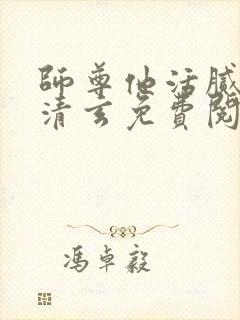 師尊他活膩
清玄免費閱
馮卓毅